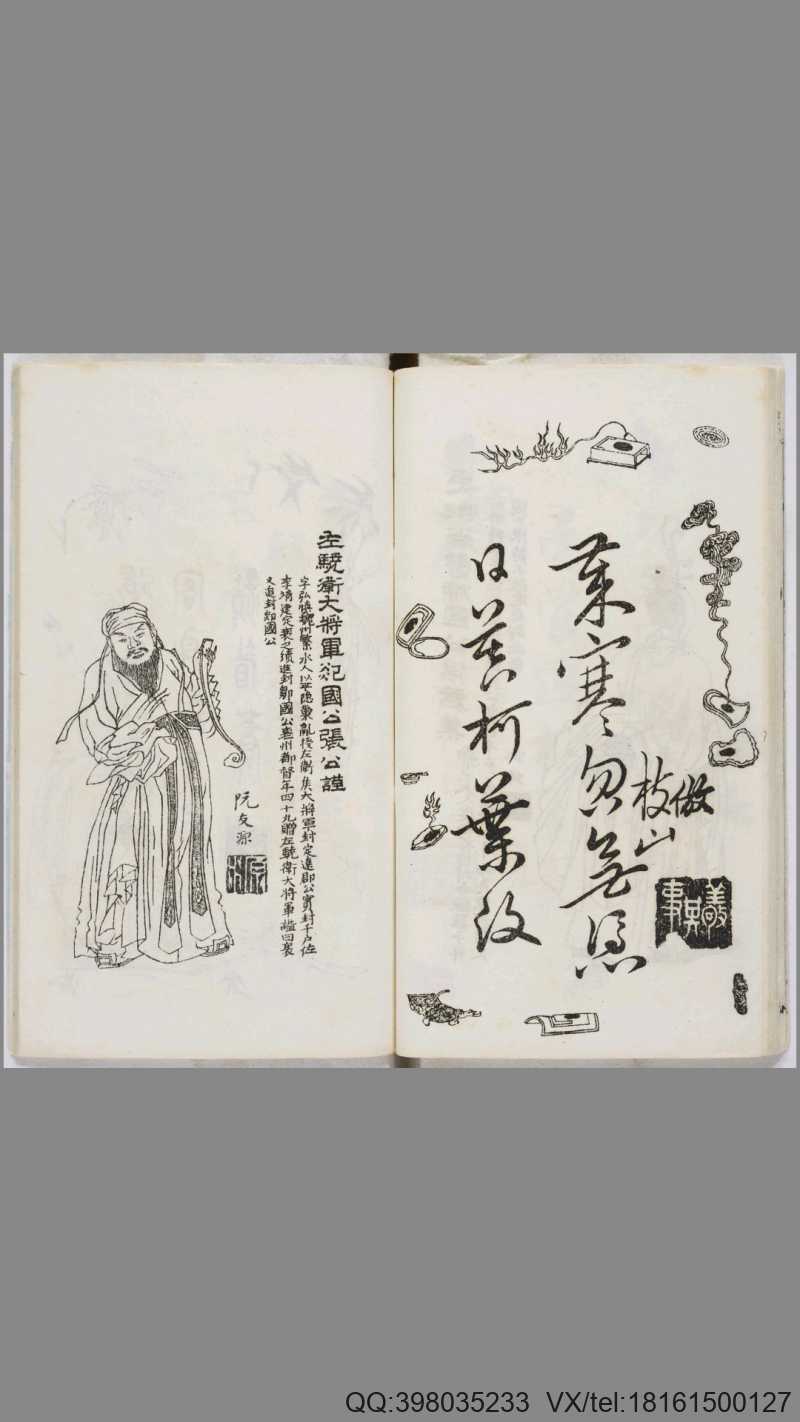 歲寒忽無憑
日夜柯葉改
倣
枝山
左驍衛大將軍郯國公張公謹
字弘慎魏州繁水人以平隐巢亂授左衛大將軍封定遠郡公實封千戶佐
李靖建定襄之績進封鄒國公襄州都督年四十九贈左驍衛大將軍謚曰襄
又追封郯國公
阮文源
QQ:398035233 VX/tel:18161500127